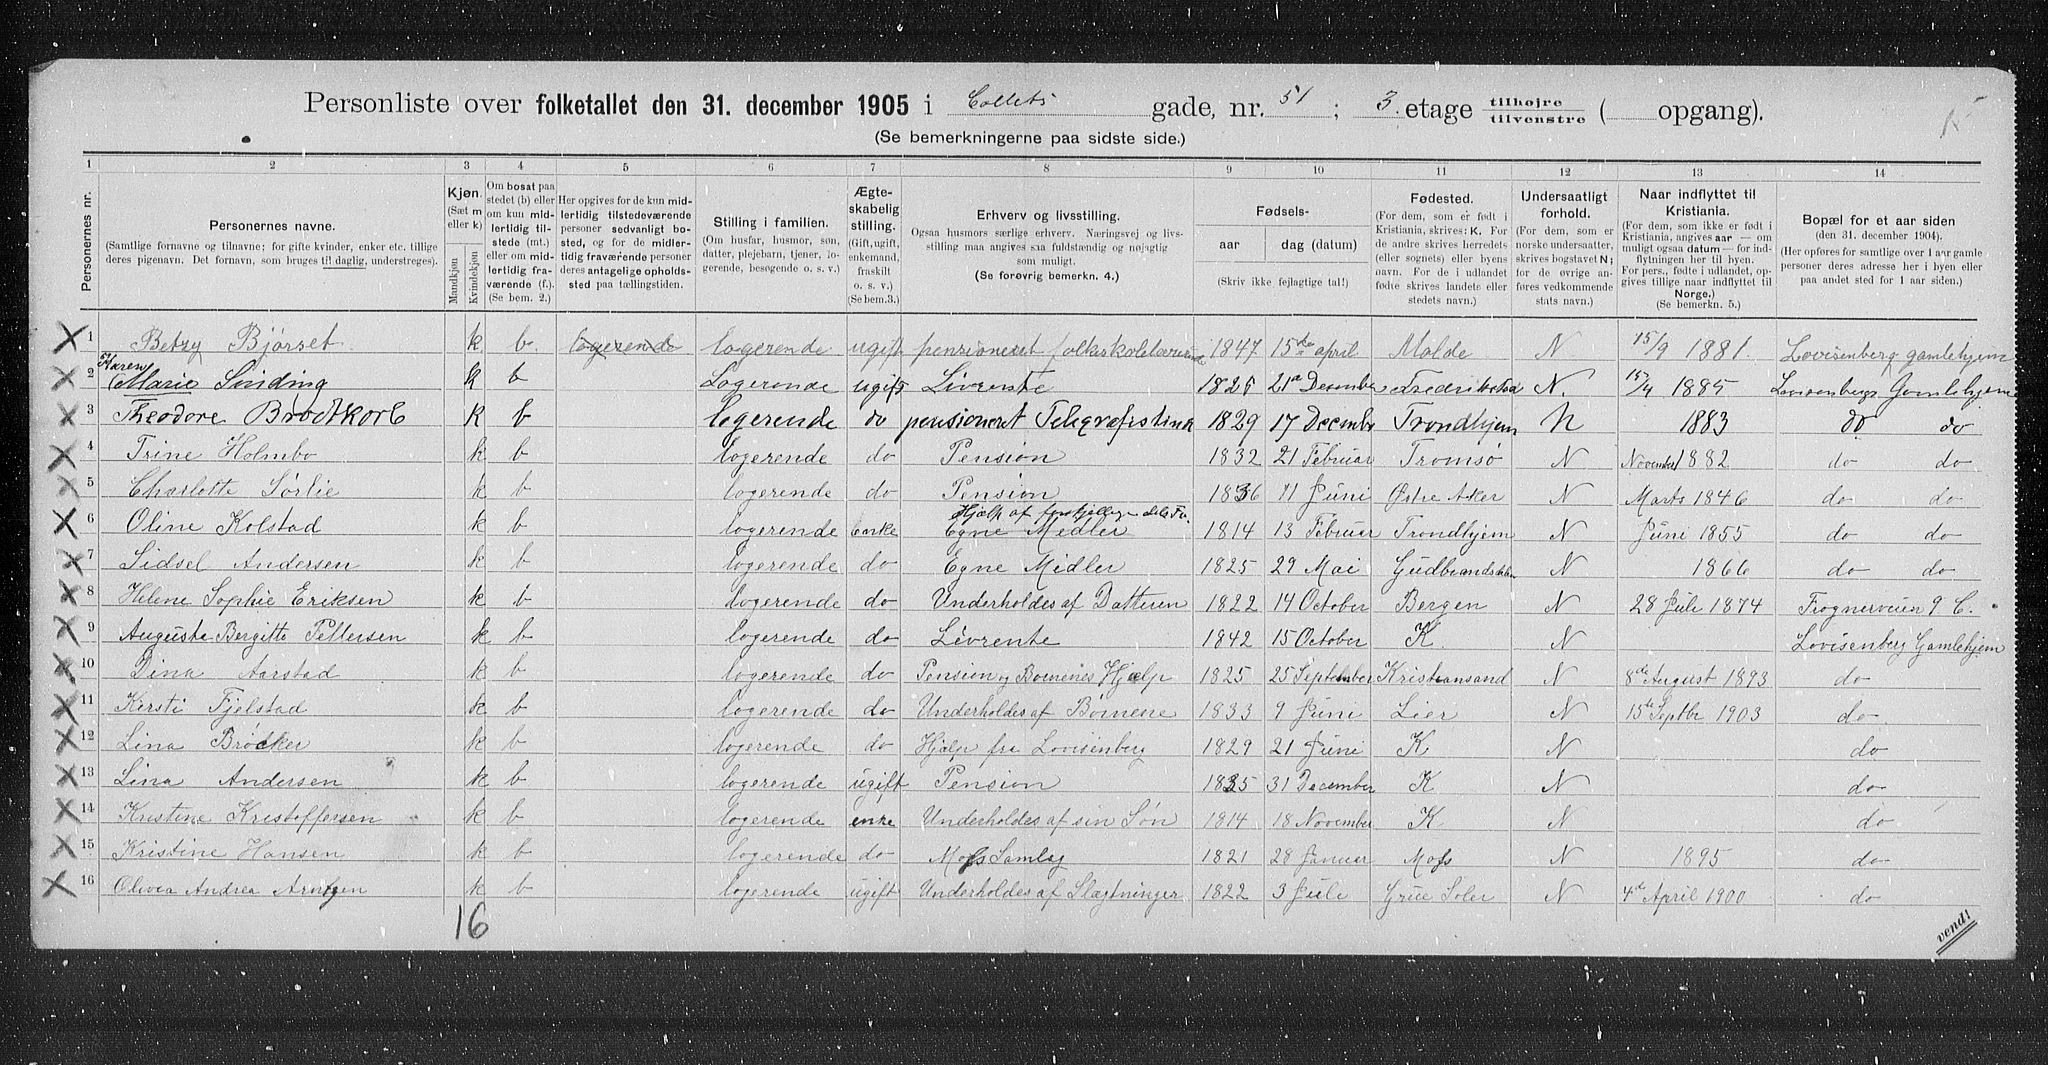 Personliste over folketallet den 31. december 1905 i Collets gade, nr. 51 ; 3. etage tilhøjre tilvenstre ( opgang).
(Se bemerkningerne paa sidste side.)
1 2 3 4 5 6 7 8 9 10 11 12 13 14
Personernes nr.
Personernes navne.
(Samtlige fornavne og tilnavne; for gifte kvinder, enker etc. tillige deres pigenavn. Det fornavn, som bruges til daglig, understreges).
Kjøn.
(Sæt m eller k)
Mandkjøn
Kvindekjøn
Om bosat paa stedet (b) eller om kun midlertidig tilstede (mt.) eller om midlertidig fraværende (f.).
(Se bem. 2.)
Her opgives for de kun midlertidig tilstedeværende personer sedvanligt bosted, og for de midlertidig fraværende personer deres antagelige opholdssted paa tællingstiden.
Stilling i familien.
(Om husfar, husmor, søn, datter, plejebarn, tjener, logerende, besøgende o. s. v.)
Ægteskabelig stilling.
(Gift, ugift, enkemand, fraskilt o. s. v.)
(Se bem.3.)
Erhverv og livsstilling.
Ogsaa husmors særlige erhverv. Næringsvej og livsstilling maa angives saa fuldstændig og nøjagtig som muligt.
(Se forøvrig bemerkn. 4.)
Fødsels-
aar
dag (datum)
(Skriv ikke fejlagtige tal!)
Fødested.
(For dem, som er født i Kristiania, skrives: K. For de andre skrives herredets (eller sognets) eller byens navn. For de i udlandet fødte skrives landets eller stedets navn.)
Undersaatligt forhold.
(For norske undersaatter, skrives bogstavet N; for de øvrige anføres vedkommende stats navn.)
Naar indflyttet til Kristiania.
(For dem, som ikke er født i Kristiania, angives aar — om muligt ogsaa datum — for indflytningen her til byen. For pers., fødte i udlandet, opgives tillige naar indflyttet til Norge.)
(Se bemerkn. 5.)
Bopæl for et aar siden
(den 31. december 1904).
(Her opføres for samtlige over 1 aar gamle personer deres adresse her i byen eller paa andet sted for 1 aar siden.)
1 Betzy Bjørset k. b. logerende logerende ugift pensioneret folkskolelærerinde 1847 15de april Molde N 15/9 1881. Lovisenberg gamlehjem
2 Karen Marie Sinding k b Logerende ugift Livrente 1825 21de Desember Fredrikstad N. 15/4 1885 Lovisenbergs Gamlehjem
3 Theodore Brodtkorb k b logerende do pensioneret Telegrafistinde 1829 17 Decembr Trondhjem N 1883 do do
4 Trine Holmbo k b logerende do Pension 1832 21 Februar Tromsø N November 1882 do do
5 Charlotte Sørlie k b logerende do Pension 1836 11 Juni Østre Aker N Marts 1846 do do
Hjælp af forskjellige
6 Oline Kolstad k b logerende Enke Egne Midler 1814 13 Februar Trondhjem N Juni 1855 do do
7 Sidsel Andersen k b logerende do Egne Midler 1825 29 Mai Gudbrandsdalen N 1866 do do
8 Helene Sophie Eriksen k b logerende do Underholdes af Datteren 1822 14 October Bergen N 28 Juli 1874 Frognerveien 9 C.
9 Auguste Bergitte Pettersen k b logerende do Livrente 1842 15 October K. N Lovisenberg Gamlehjem
10 Dina Aarstad k b logerende do Pension og Børnenes Hjælp 1825 25 September Kristiansand N 8de August 1893 do
11 Kersti Fjelstad k b logerende do Underholdes af Børnene 1833 9 Juni Lier N 15de Septbr 1903 do
12 Lina Brøcker k b logerende do Hjælp fra Lovisenberg 1829 21 Juni K N do
13 Lina Andersen k b logerende ugift Pension 1835 31 December K N do
14 Kristine Kristoffersen k b logerende enke Underholdes af sin Søn 1814 18 November K N do
15 Kristine Hansen k b logerende do Moss Samlag 1821 28 Januar Moss N 1895 do
16 Olivea Andrea Arntzen k b logerende ugift Underholdes af Slægtninger 1822 3 Juli Grue Soler N 4de April 1900 do
16
vend!